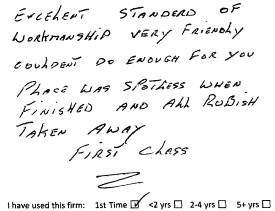 EXCELENT STANDERD OF
WORKMANSHIP VERY FRIENDLY
COULDENT DO ENOUGH FOR YOU
PLACE WAS SPOTLESS WHEN
FINISHED AND ALL RUBISH
TAKEN AWAY
FIRST CLASS
I have used this firm: 1st Time ☑ <2 yrs ☐ 2-4 yrs ☐ 5+ yrs ☐